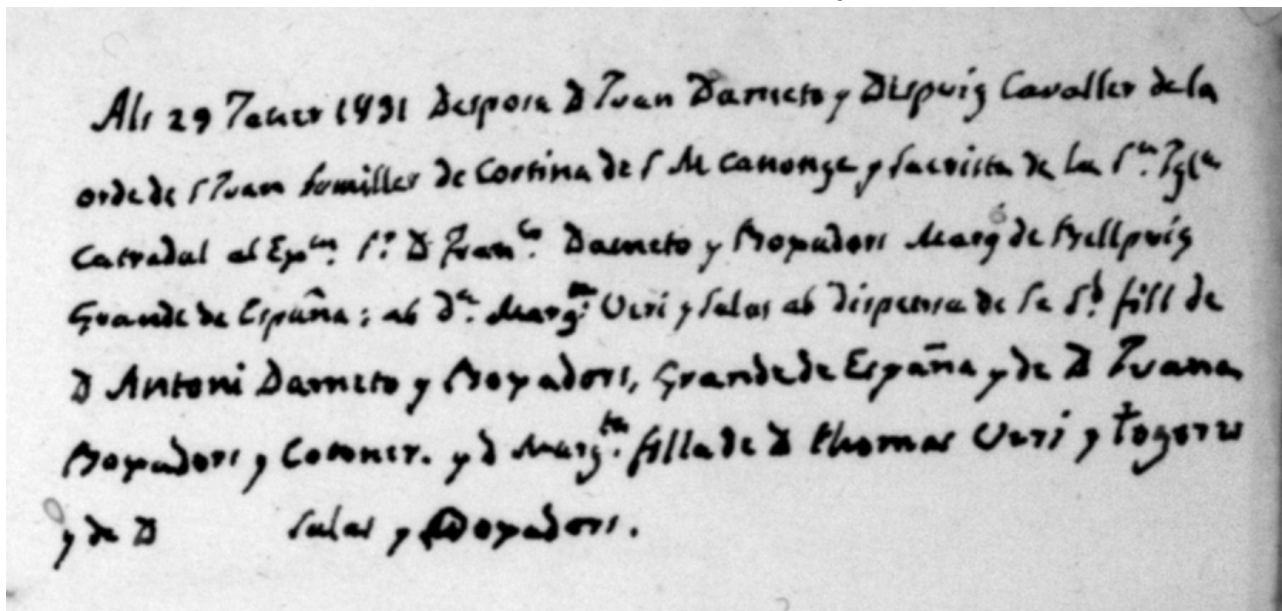 Als 29 Janer 1831 Desposa D Juan Dameto y Despuig Cavaller de la
orde de S Juan sumiller de Cortina de S M canonge y sacrista de la Sta. Iglª
Catradal al Exmo. Sr. D Franco. Dameto y Boxadors Marq de Bellpuig
Grande de España; ab Dª. Margta. Veri y Salas ab dispensa de Se Sd. fill de
D Antoni Dameto y Boxadors, Grande de España y de D Juana
Boxadors y Cotoner. y d Margta. filla de D Thomas Veri y Togores
y de D Salas y Boxadors.